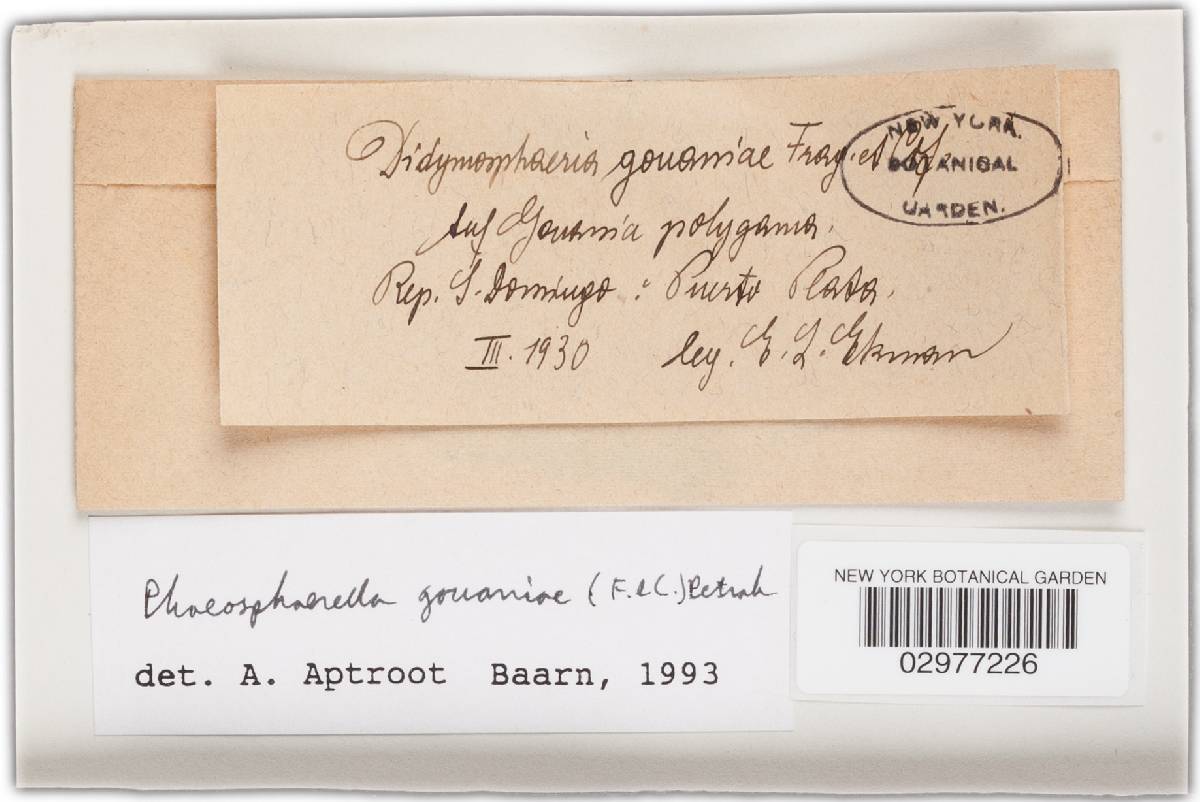 Didymosphaeria gouaniae Frag. et Cif.
NEW YORK
BOTANICAL
GARDEN.
Auf Gouania polygama.
Rep. S. Domingo: Puerto Plata.
III. 1930 leg. E. L. Ekman
Phaeosphaerella gouaniae (F. & C.) Petrak
det. A. Aptroot Baarn, 1993
NEW YORK BOTANICAL GARDEN
02977226